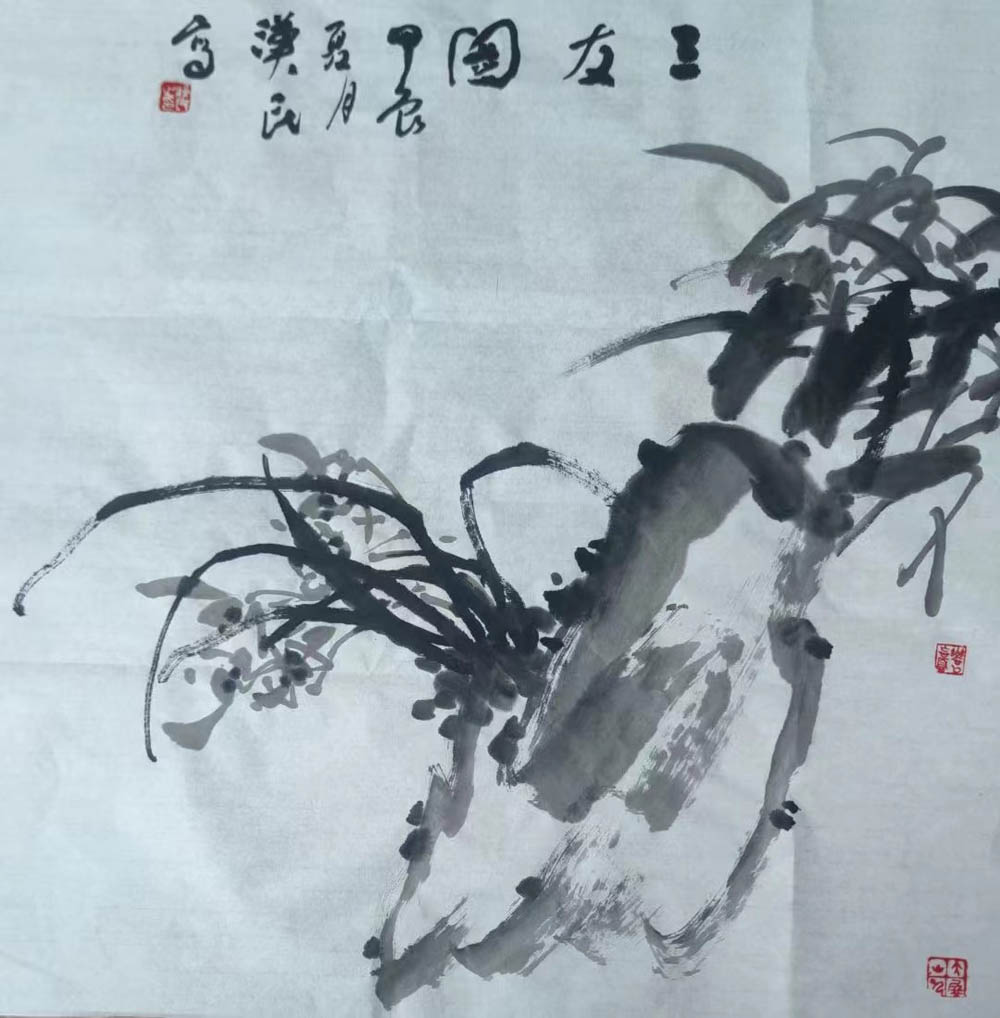 三友圖
甲辰
夏月
漢民
寫